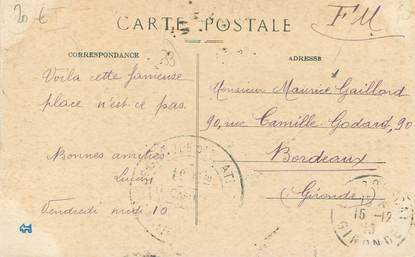 20 €
CARTE POSTALE
FM
CORRESPONDANCE
ADRESSE
Voila cette fameuse
place n'est ce pas.
Bonnes amitiés
Lucien
Vendredi midi 10
Monsieur Maurice Gaillard
90, rue Camille Godard, 90
Bordeaux
(Gironde)
15-12
GIRONDE